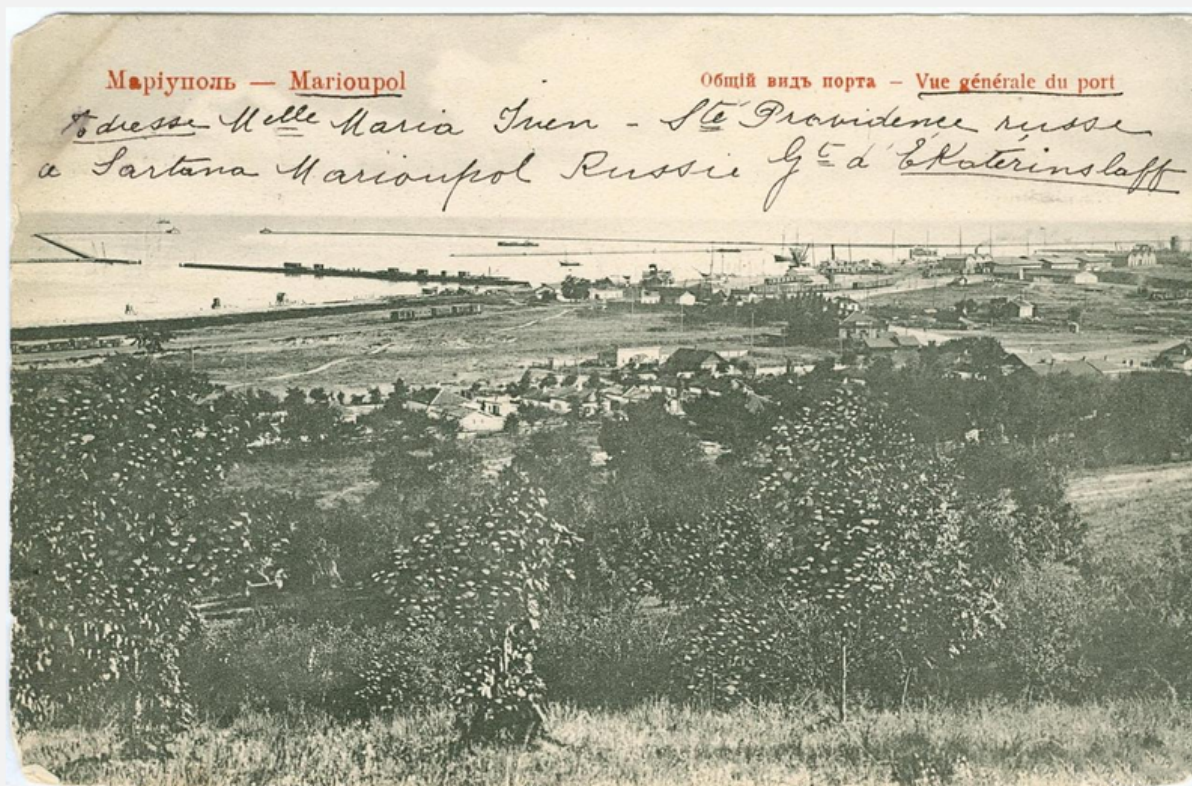 Маріуполь — Marioupol
Общій видъ порта — Vue générale du port
Adresse Melle Maria Iven - Sté Providence russe
a Sartana Marioupol Russie Gt d'Ékatérinslaff